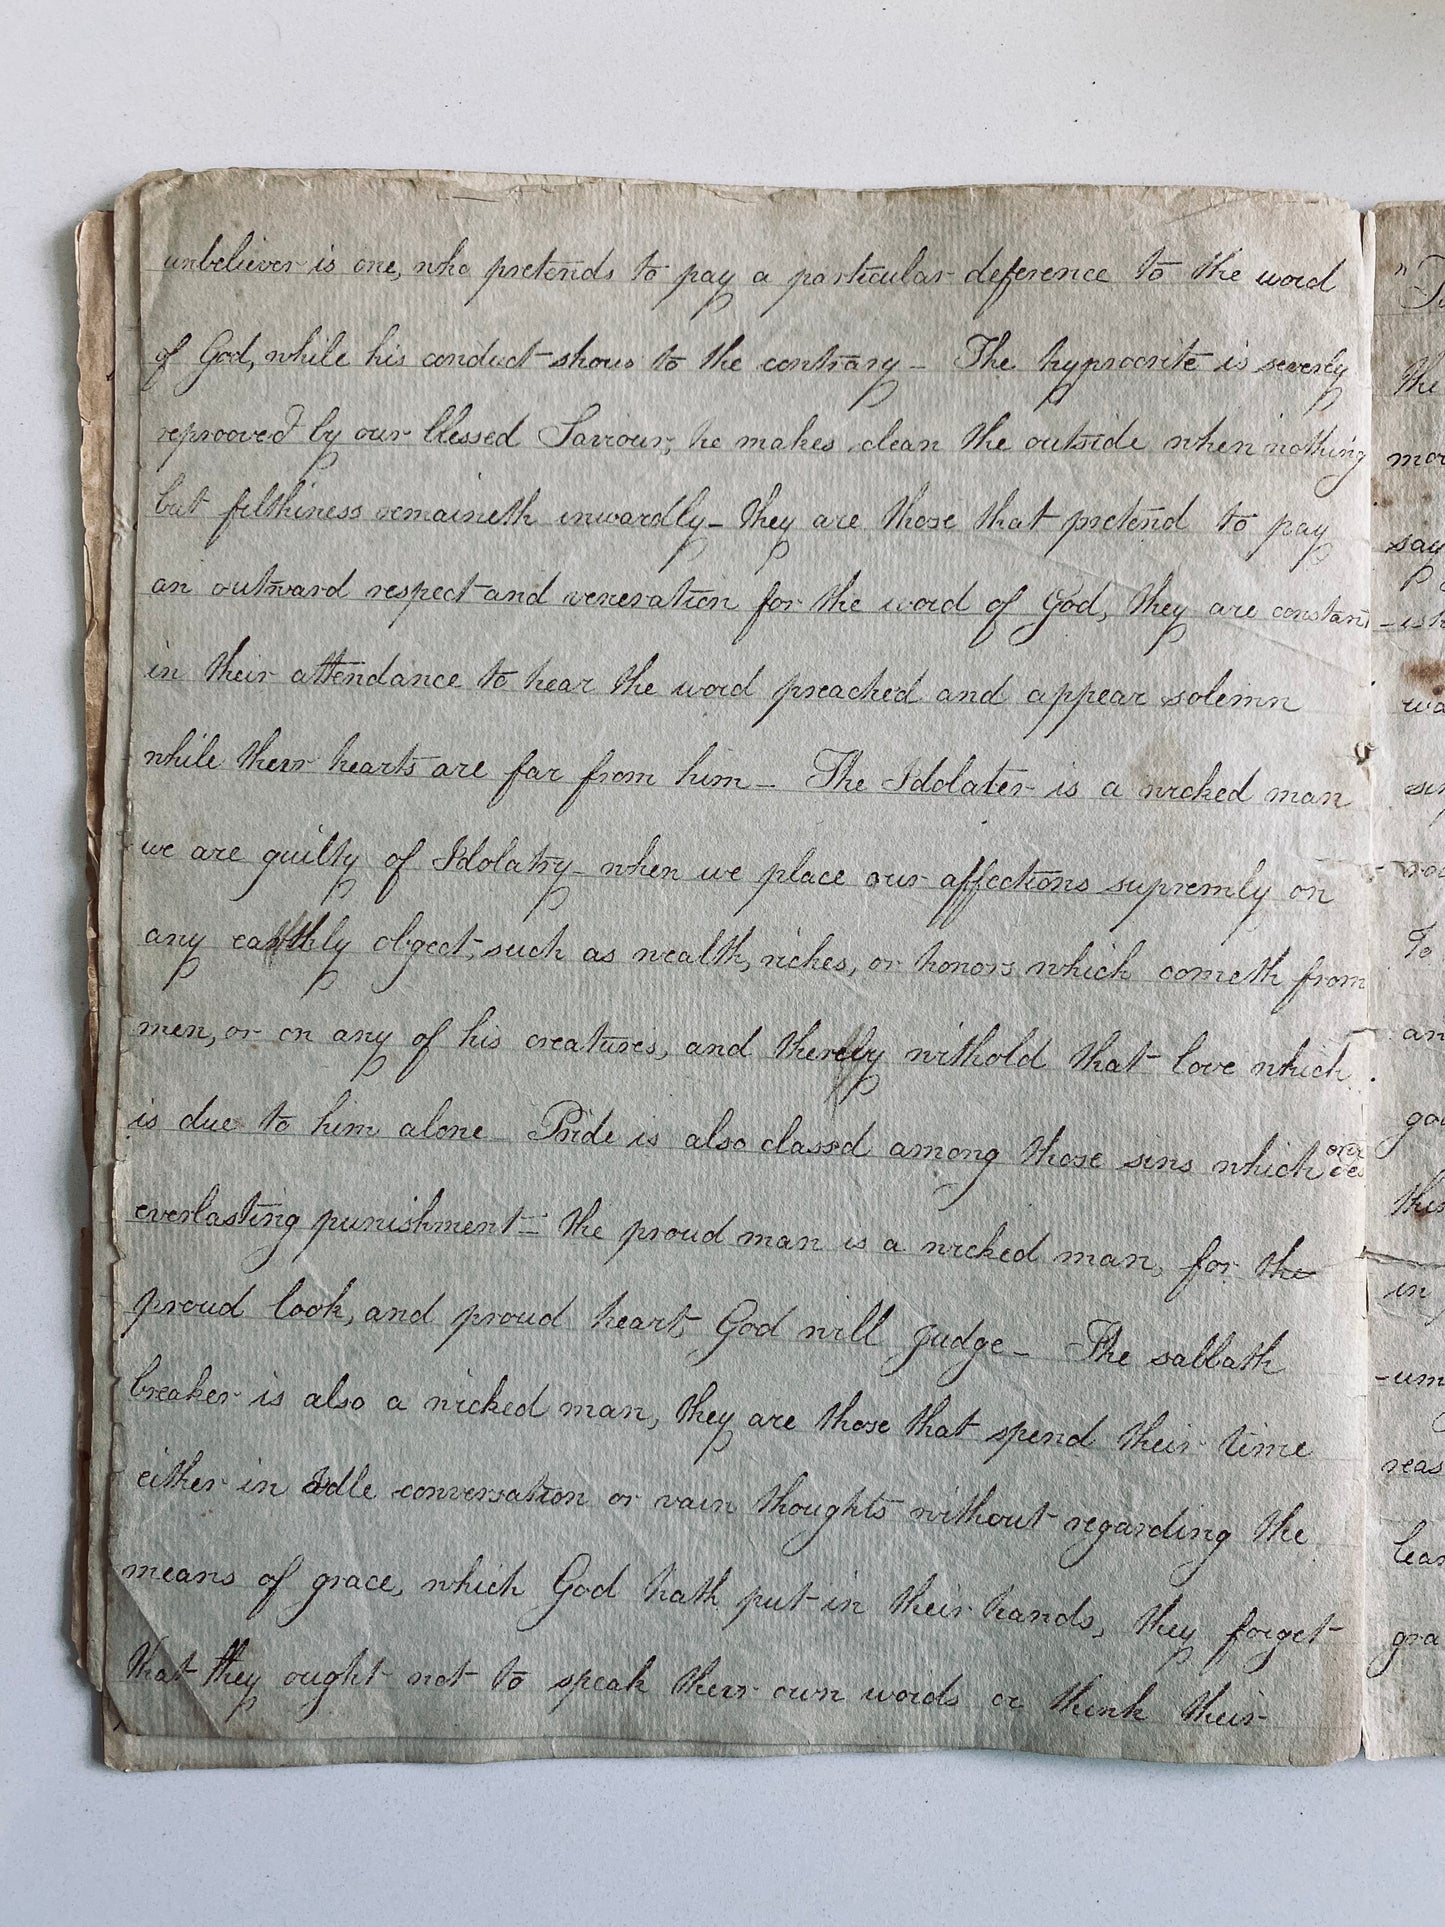 unbeliever is one, who pretends to pay a particular deference to the word
of God, while his conduct shows to the contrary - The hyprocrite is severly
reprooved by our blessed Saviour, he makes clean the outside when nothing
but filthiness remaineth inwardly - they are those that pretend to pay
an outward respect and veneration for the word of God, they are constant
in their attendance to hear the word preached and appear solemn
while their hearts are far from him - The Idolater is a wicked man
we are guilty of Idolatry - when we place our affections supremly on
any earthly object, such as wealth, riches, or honors which cometh from
men, or on any of his creatures, and thereby withold that love which
is due to him alone - Pride is also classd among those sins which
everlasting punishment - the proud man is a wicked man, for the
proud look, and proud heart, God will judge - The sabbath
breaker is also a wicked man, they are those that spend their time
either in Idle conversation or vain thoughts without regarding the
means of grace, which God hath put in their hands, they forget
that they ought not to speak their own words or think their
the
say
To
in